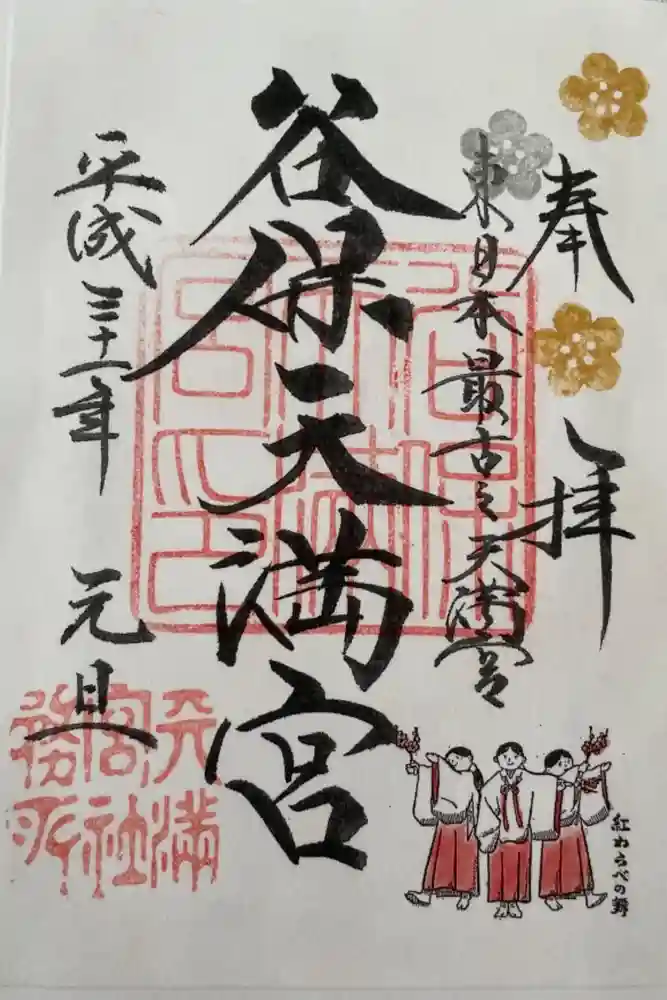 奉拝
東日本最古之天満宮
谷保天満宮
平成三十一年 元旦
天満
宮社
務所